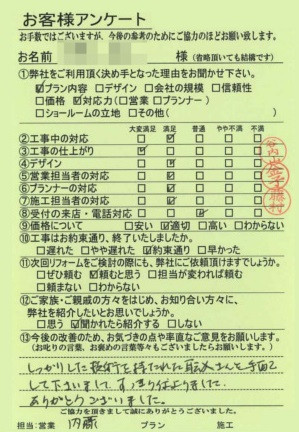 お客様アンケート
お手数ではございますが、今後の参考のためにご協力のほどお願い致します。
お名前 様(省略頂いても結構です)
①弊社をご利用頂く決め手となった理由をお聞かせ下さい。
☑プラン内容 □デザイン □会社の規模 □信頼性
□価格 ☑対応力(□営業 □プランナー)
□ショールームの立地 □その他( )
大変満足 満足 普通 やや不満 不満
②工事中の対応 □ ☑ □ □ □
③工事の仕上がり ☑ □ □ □ □
④デザイン □ ☑ □ □ □
⑤営業担当者の対応 □ ☑ □ □ □
⑥プランナーの対応 □ ☑ □ □ □
⑦施工担当者の対応 □ ☑ □ □ □
⑧受付の来店・電話対応 □ □ ☑ □ □
⑨価格について □安い ☑適切 □高い □わからない
⑩工事はお約束通り、終了いたしましたか。
□遅れた □やや遅れた ☑約束通り □早かった
⑪次回リフォームをご検討の際にも、弊社にご依頼頂けますでしょうか。
□ぜひ頼む ☑頼むと思う □担当が変われば頼む
□頼まない □わからない
⑫ご家族・ご親戚の方々をはじめ、お知り合い方々に、
弊社を紹介したいとお思いでしょうか。
□思う ☑聞かれたら紹介する □しない
⑬今後の改善のため、お気づきの点や率直なご意見をお願いします。
(お叱りの言葉、お褒めの言葉等々もございましたらお願いします。)
しっかりした技術を持たれた職人さんと手配
して下さいまして、すっきりはよりました。
ありがとうございました。
ご協力を頂きまして誠にありがとうございました。
担当:営業 内藤 プラン 施工